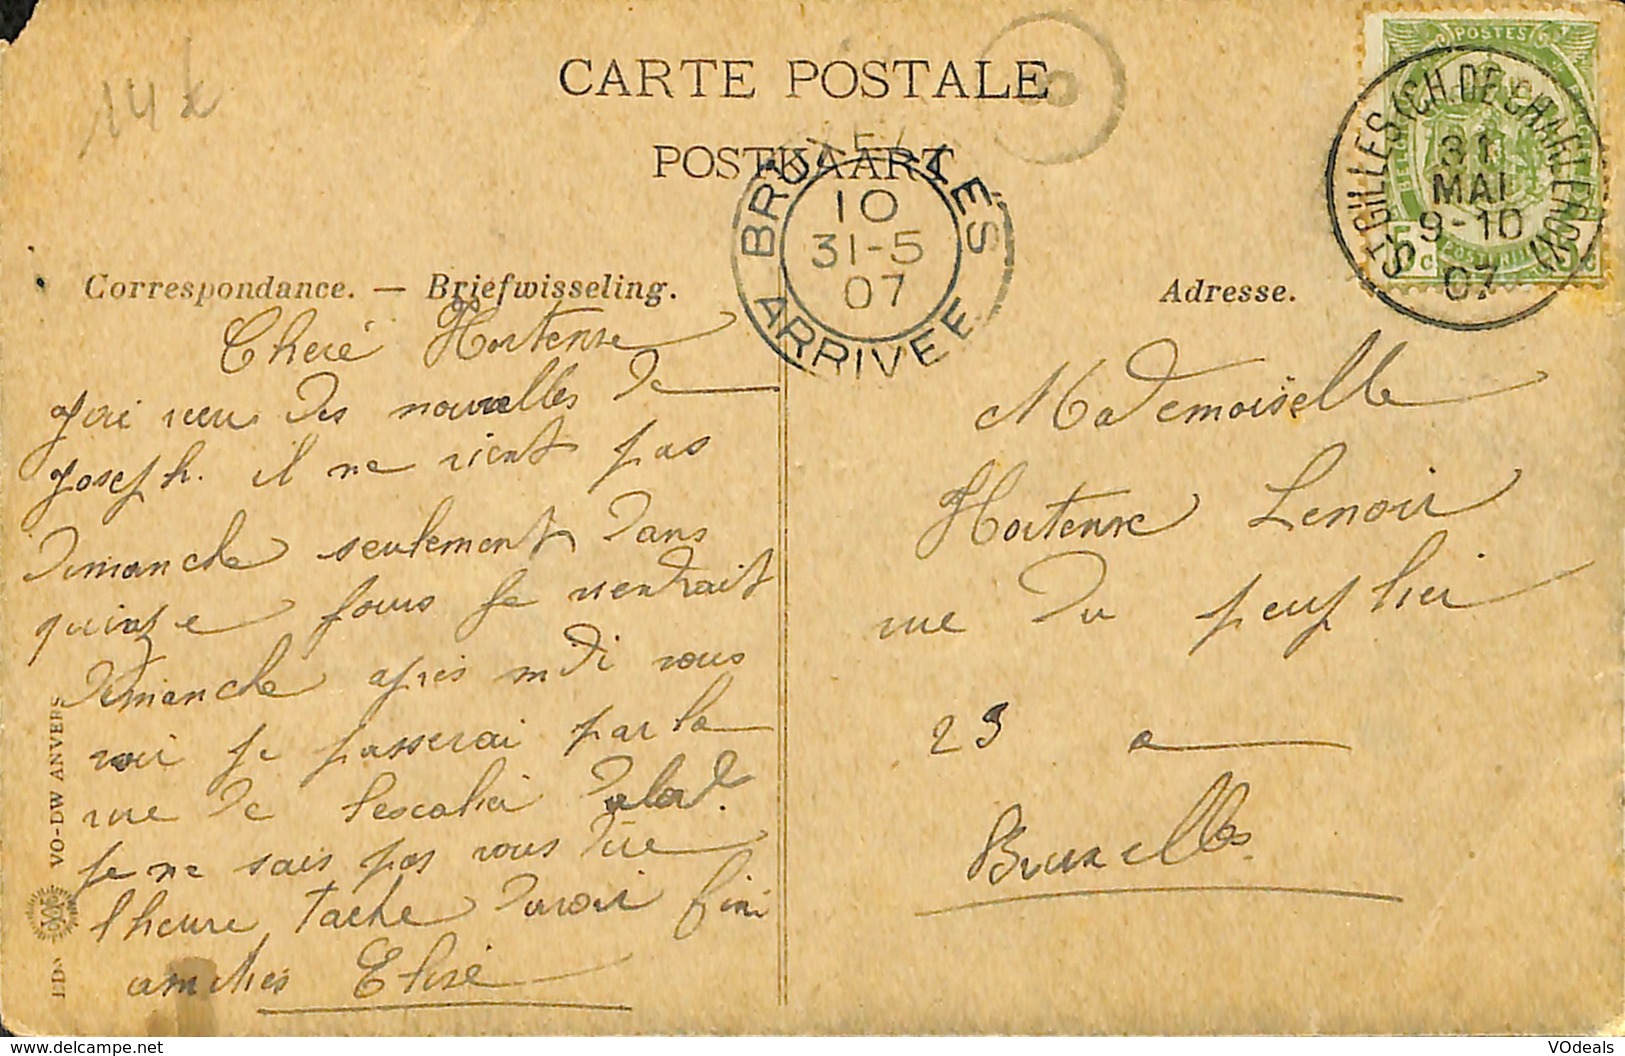 14 k
CARTE POSTALE
POSTKAART
BRUXELLES
10
31-5
07
ARRIVEE
POSTES
ST GILLES (CH. DE CHARLEROI)
31
MAI
9-10
07
Correspondance. — Briefwisseling.
Adresse.
Cheré Hortense
j'ai reeu des nouvelles de
joseph. il ne vient pas
dimanche seulement dans
quinze jours je viendrait
dimanche apres midi vous
voir je passerai par la
rue de lescalier dabord.
je ne sais pas vous dire
lheure tache davoir fini
amities Elise
Mademoiselle
Hortense Lenoir
rue du peuplier
23 a
Bruxelles
EDs VO-DW ANVERS
http://www.delcampe.net
VOdeals